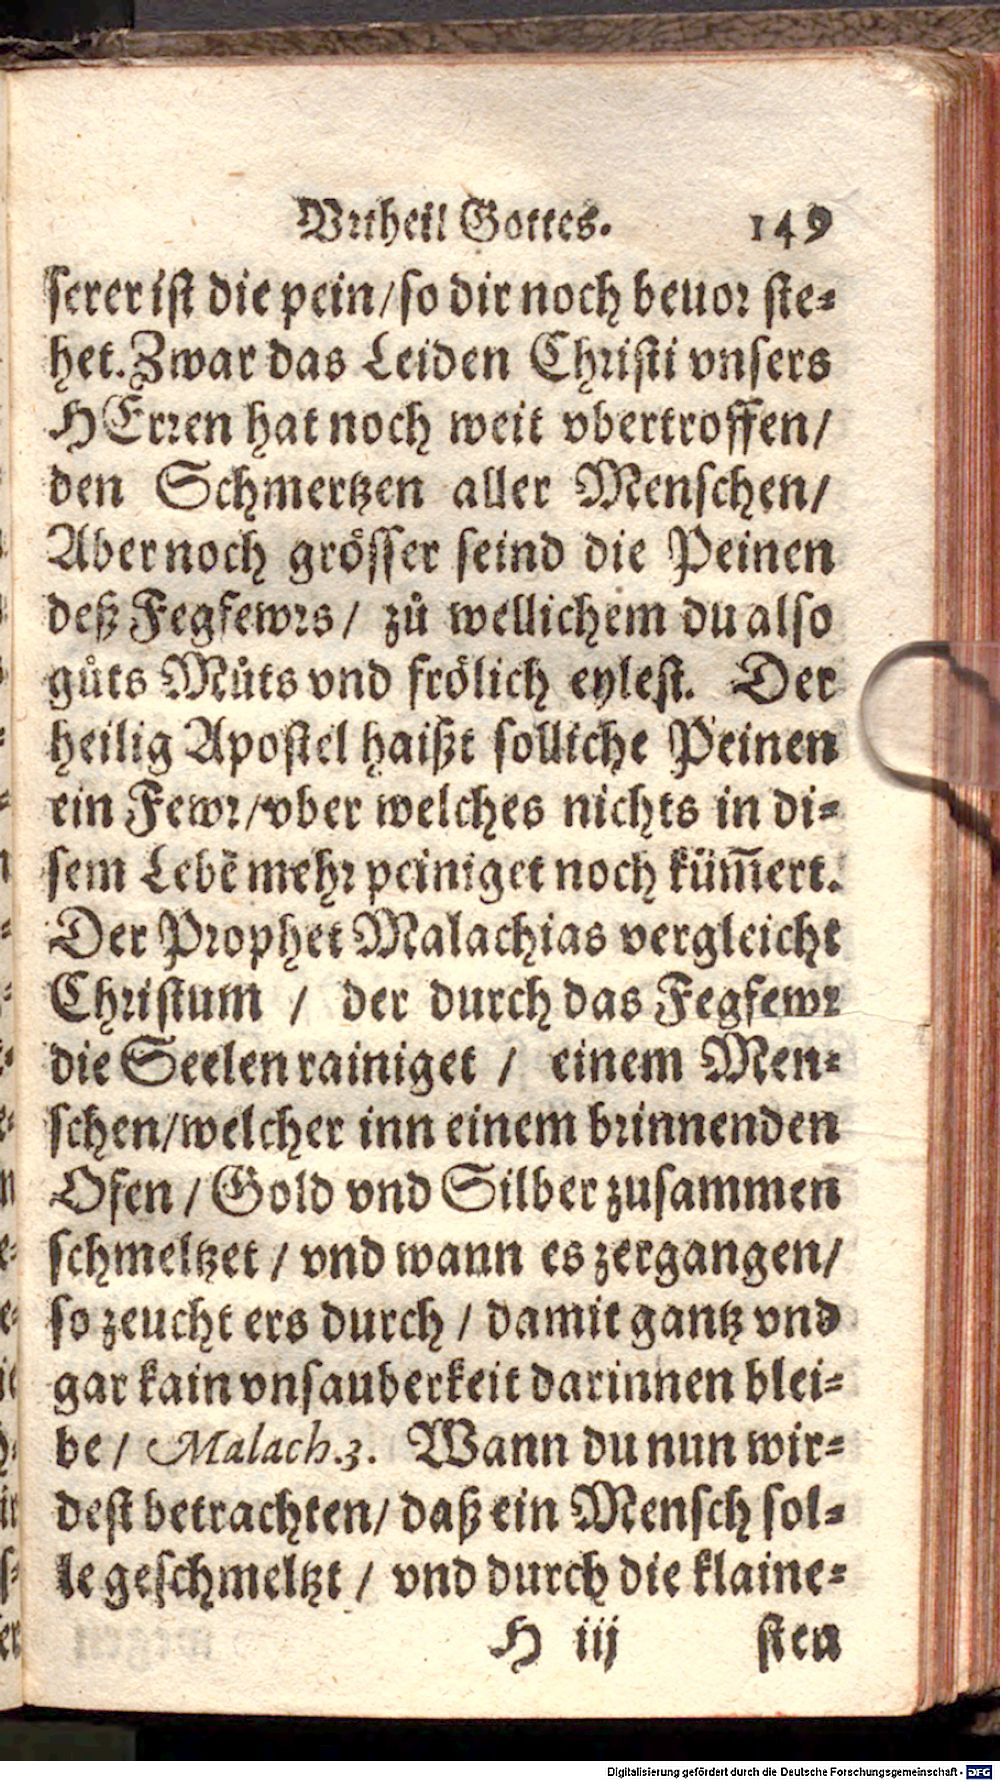 Vrtheil Gottes. 149
serer ist die pein/so dir noch beuor ste-
het. Zwar das Leiden Christi vnsers
HErren hat noch weit vbertroffen/
den Schmertzen aller Menschen/
Aber noch grösser seind die Peinen
deß Fegfewrs/ zů wellichem du also
gůts Můts vnd frölich eylest. Der
heilig Apostel haißt solliche Peinen
ein Fewr/vber welches nichts in di-
sem Lebē mehr peiniget noch küm̄ert.
Der Prophet Malachias vergleicht
Christum / der durch das Fegfewr
die Seelen rainiget / einem Men-
schen/welcher inn einem brinnenden
Ofen / Gold vnd Silber zusammen
schmeltzet / vnd wann es zergangen/
so zeucht ers durch / damit gantz vnd
gar kain vnsauberkeit darinnen blei-
be / Malach.3. Wann du nun wir-
dest betrachten/ daß ein Mensch sol-
le geschmeltzt / vnd durch die klaine-
H iij sten
Digitalisierung gefördert durch die Deutsche Forschungsgemeinschaft - DFG